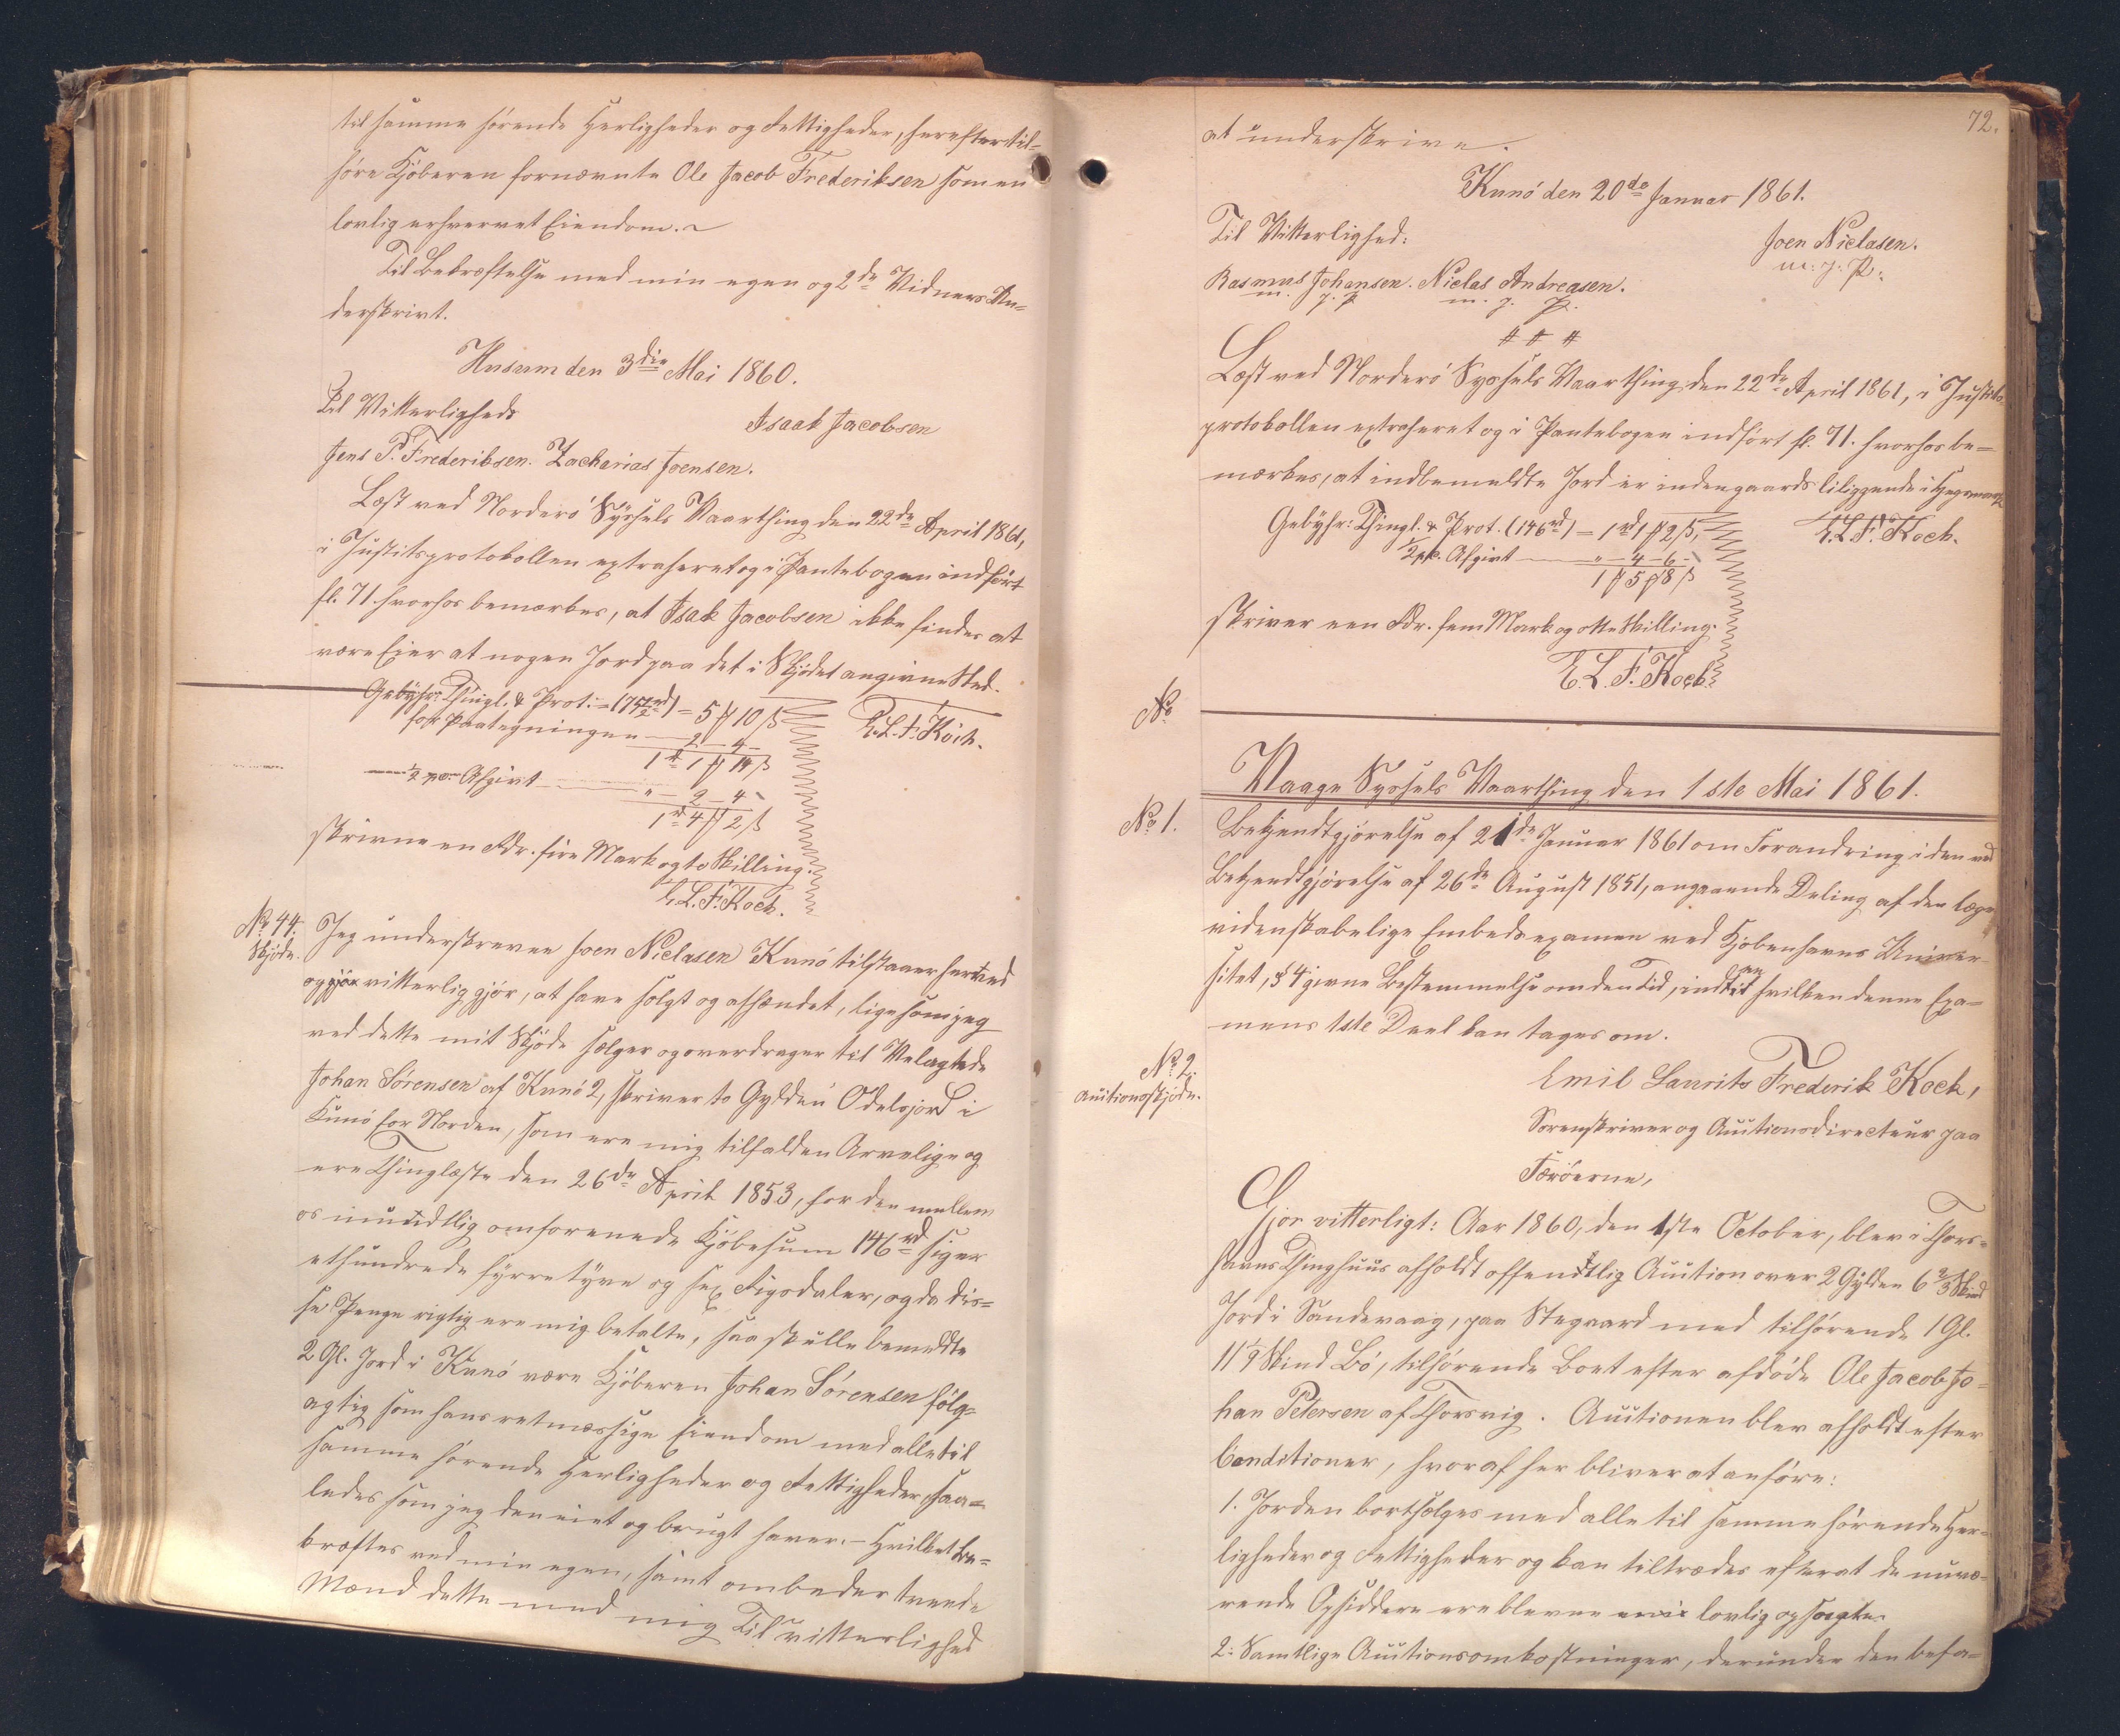 til samme hørende Herligheder og Rettigheder, herefter til-
høre Kjøberen fornævnte Ole Jacob Frederiksen som en
lovlig erhvervet Eiendom.
Til Bekræftelse med min egen og 2de Vidners Un-
derskrivt.
Husum den 3die Mai 1860.
Til Vitterligheds
Isaak Jacobsen
Jens P. Frederiksen. Zacharias Joensen.
Læst ved Norderø Syssels Vaarthing den 22de April 1861,
i Justitsprotokollen extraheret og i Pantebogen indført
fl. 71. hvorhos bemærkes, at Isak Jacobsen ikke findes at
være Eier at nogen Jord paa det i Skjødet angivne Sted.
Gebyhr: Thingl. & Prot. = (75½rd) = 5 ℳ 10 ß
E.L.F. Koch.
for Paategningen — 2 — 4 —
1rd 1 ℳ 14 ß
½ pC. Afgivt — " — 2 — 4
1rd 4 ℳ 2 ß
skrivne en Rdr. fire Mark og to Skilling.
E.L.F. Koch.
No 44.
Skjøde.
Jeg underskrevne Joen Niclasen Kunø tilstaaer herved
og gjør vitterlig gjør, at have solgt og afhændet, ligesom jeg
ved dette mit Skjøde sælger og overdrager til Velagtede
Johan Sørensen af Kunø 2, skriver to Gylden Odelsjord i
Kunø for Norden, som ere mig tilfalden Arvelige og
ere Thinglæste den 26de April 1853, for den mellem
os mundtlig omforenede Kjøbesum 146rd siger
ethundrede fyrretyve og sex Rigsdaler, og da dis-
se Penge rigtig ere mig betalte, saa skulle bemeldte
2 Gl. Jord i Kunø være Kjøberen Johan Sørensen følg-
agtig som hans retmæssige Eiendom med alle til
samme hørende Herligheder og Rettigheder, saa-
ledes som jeg den eiet og brugt haver. – Hvilket be-
kræftes ved min egen, samt ombeder tvende
Mænd dette med mig Til vitterlighed
72.
at underskrive.
Kunø den 20de Januar 1861.
Til Vitterlighed:
Joen Niclasen.
m. f. P.
Rasmus Johansen. Niclas Andreasen.
m. f. P. m. f. P.
# # #
Læst ved Norderø Syssels Vaarthing den 22de April 1861, i Justits-
protokollen extraheret og i Pantebogen indført fl. 71. hvorhos be-
mærkes, at indbemeldte Jord er indengaards
Gebyhr: Thingl. & Prot. (146rd) = 1rd 1 ℳ 2 ß,
E.L.F. Koch.
½ pC. Afgivt — " — 4 — 6 —
1 ℳ 5 ℳ 8 ß
skriver een Rdr. fem Mark og otte Skilling.
E.L.F. Koch.
No
Vaagø Syssels Vaarthing den 1ste Mai 1861.
No 1.
Bekjendtgjørelse af 21de Januar 1861 om Forandring i den ved
Bekjendtgjørelse af 26de August 1851, angaaende Deling af den læge-
videnskabelige Embedsexamen ved Kjøbenhavns Univer-
sitet, § 4 givne Bestemmelse om den Tid, inden hvilken denne Exa-
mens 1ste Deel kan tages om.
No 2.
Auctionsskjøde.
Emil Laurits Frederik Koch,
Sorenskriver og Auctionsdirecteur paa
Færøerne,
Gjør vitterligt: Aar 1860, den 1ste October, blev i Thors-
havns Thinghuus afholdt offentlig Auction over 2 Gylden 6 2/3 Skind
Jord i Sandevaag, paa Stegaard med tilhørende 1 Gl.
11 1/9 Skind Bø, tilhørende Boet efter afdøde Ole Jacob Jo-
han Petersen af Thorsvig. Auctionen blev afholdt efter
Conditioner, hvoraf her bliver at anføre:
1. Jorden bortsælges med alle til samme hørende Her-
ligheder og Rettigheder og kan tiltrædes efterat de nuvæ-
rende Opsiddere ere blevne lovlig opsagte.
2. Samtlige Auctionsomkostninger, derunder den befa-